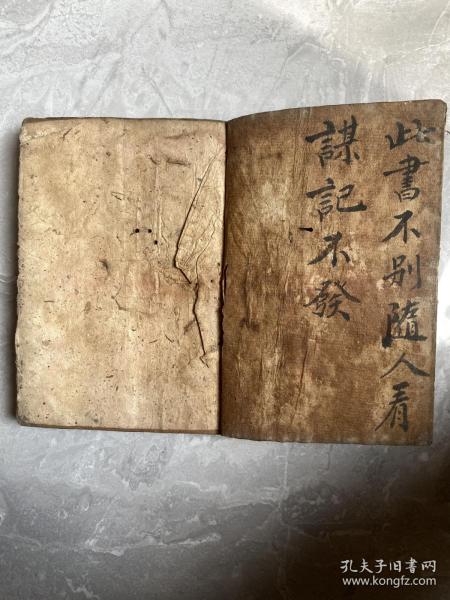 此書不别隨人看
謀記不發
孔夫子旧书网
www.kongfz.com